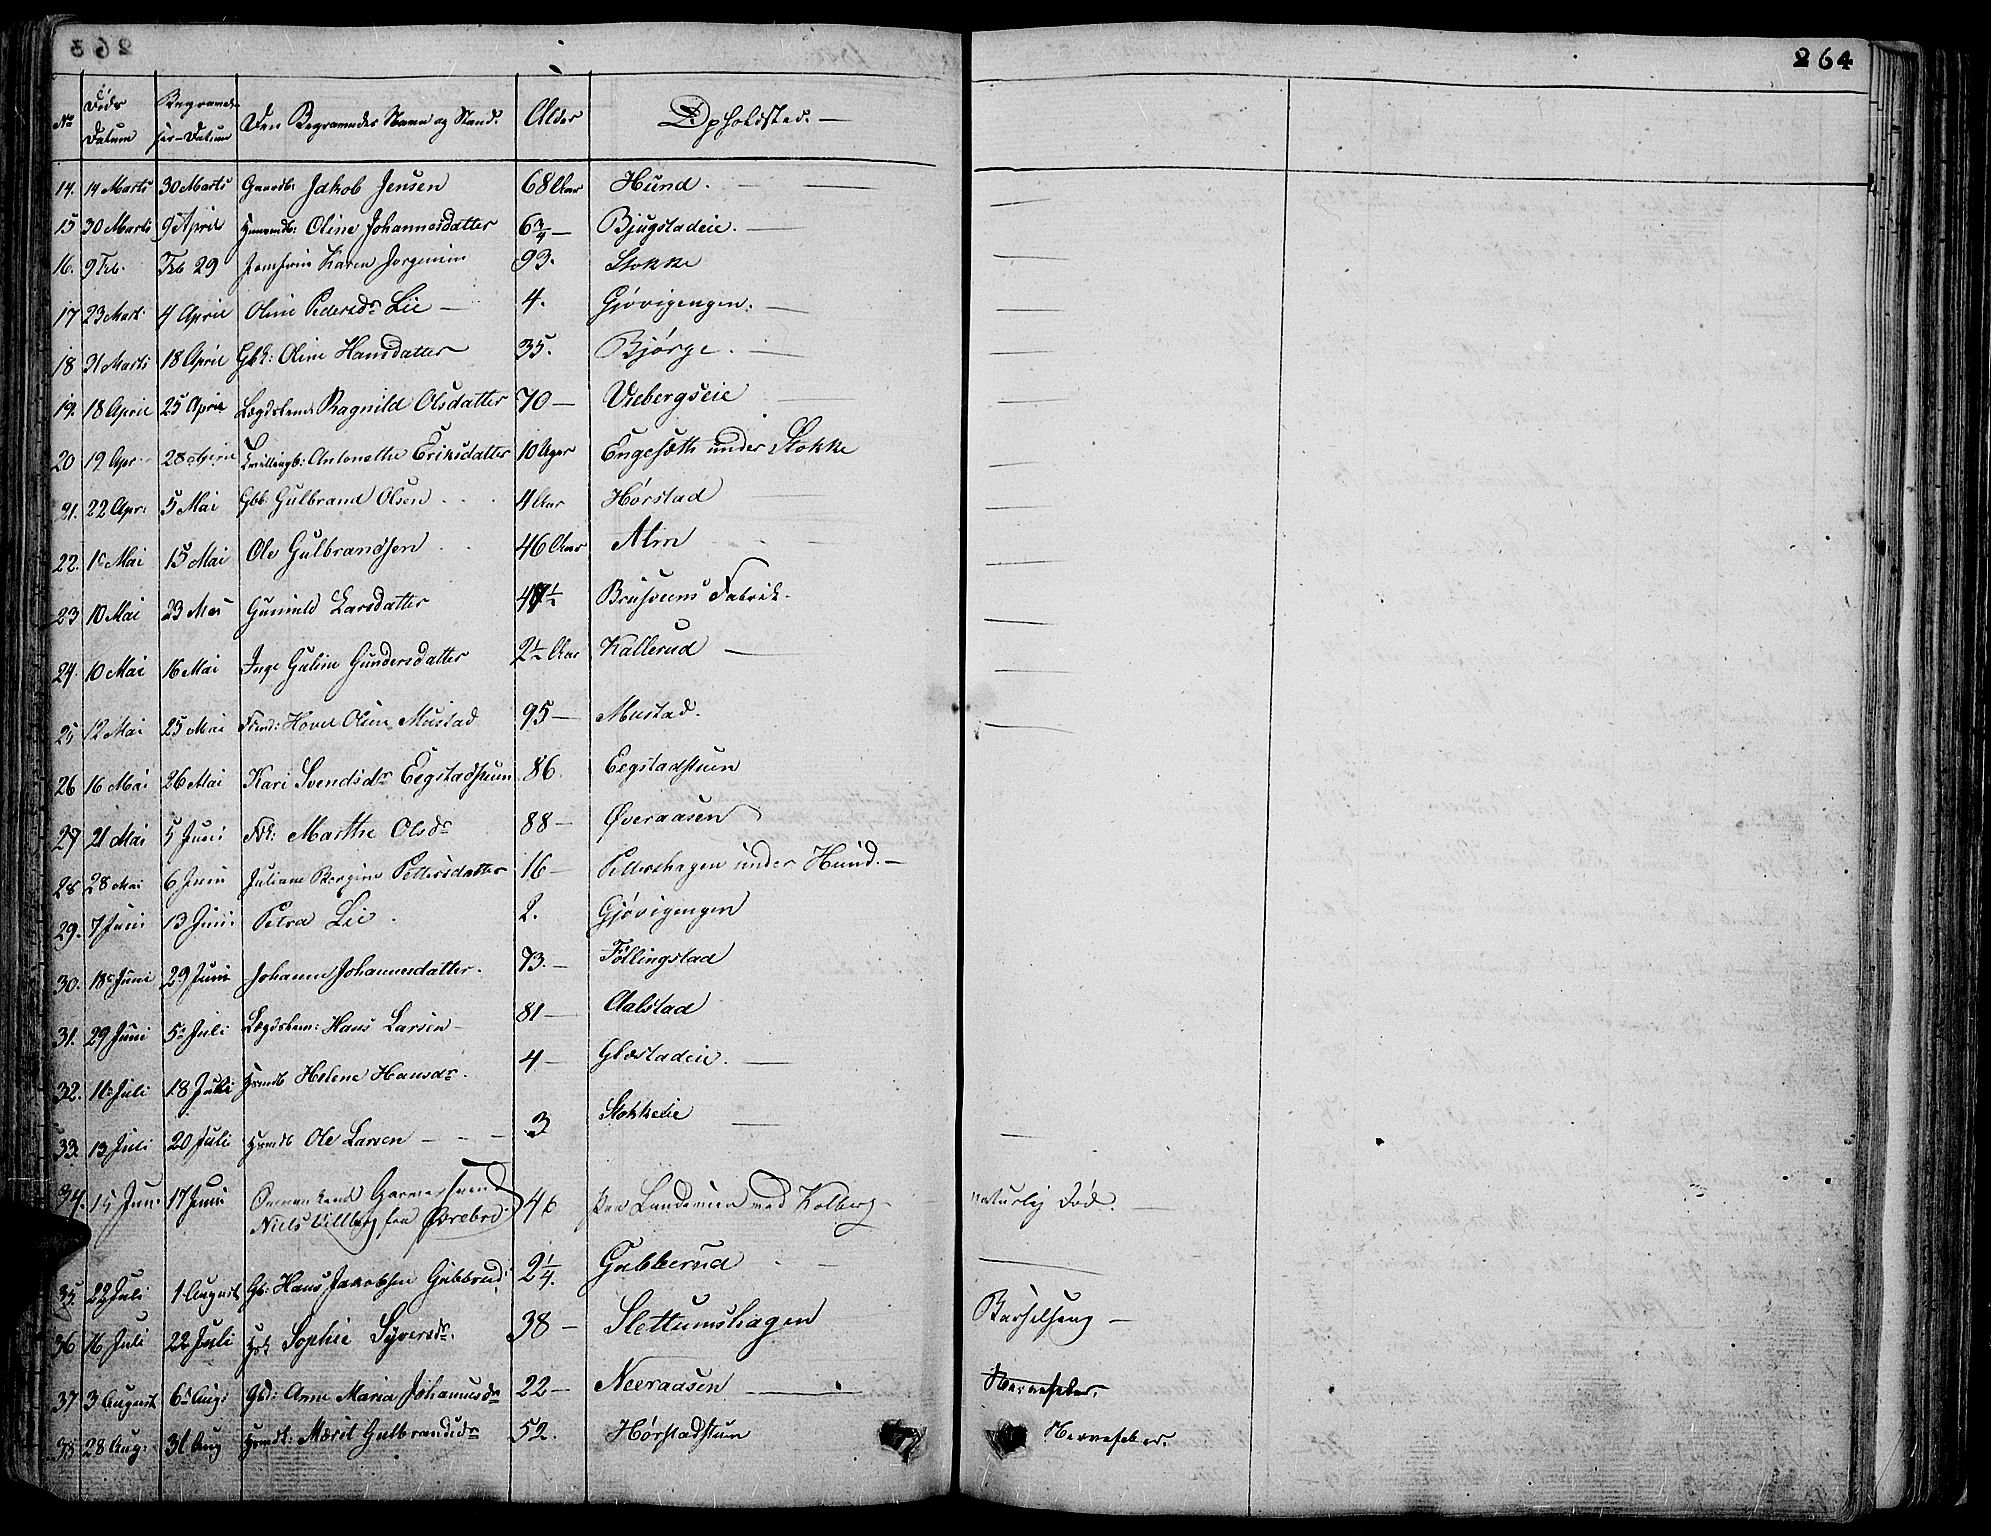 263
264
No Døds Datum Begravelser-Datum Den Begravedes Navn og Stand. Alder Opholdsted.
14. 14 Marts 30 Marts Gaardbr Jakob Jensen 68 Aar Hund.
15 30 Marts 9 April Huusmdb: Oline Johannesdatter 6 3/4 Bjugstadeie.
16. 9 Feb. Feb 29 Karen Jorgensen 93. Stokke
17 23 Mart. 4 April Oline Pedersdr Lie 4. Gjøvigengen.
18 21 Marts 18 April Gbk: Oline Hansdatter 35. Bjørge.
19. 18 April 25 April Lægdslem: Ragnild Olsdatter 70 Viebergseie
20 19 Apr. 28 April Tvillingb: Antonethe Eriksdatter 10 Uger Engesæth under Stokke
21. 22 Apr: 5 Mai Gbb Gulbrand Olsen 4 Aar Hørstad
22. 1 Mai 15 Mai Ole Gulbrandsen 46 Aar Alm
23 10 Mai 23 Mai Gunnild Larsdatter Brusveens Fabrik.
24. 10 Mai 16 Mai Inge Guline Gundersdatter 2 1/2 Aar Kallerud
25 12 Mai 25 Mai Hover Olsen Mustad 95 Mustad.
26 16 Mai 26 Mai Kari Svendsdr Eegstadstuen 86. Eegstadstuen
27 21 Mai 5 Juni Fdk: Marthe Olsdr 88 Øveraasen
28 28 Mai 6 Juni Juliane Bergine Pettersdatter 16 Pettershagen under Hund.
29. 7 Juni 13 Juni Petra Lie 2. Gjøvigengen
30. 18 Juni 29 Juni Johanne Johannesdatter. 73. Føllingstad
31. 29 Juni 5 Juli Lægdslem: Hans Larsen 81 Aalstad
32. 11 Juli 18 Juli Hsmdb Helene Hansdr. 4 Glæstadeie.
33. 13 Juli 20 Juli Hsmdb Ole Larsen 3 Stokkeeie
34. 15 Jun. 17 Juni Garversvend 46 paa Landeveien ved Kolberg naturlig Død.
Niels fra Ørebro
35. 22 Juli 1 August Gb: Hans Jakobsen Gubberud 2 1/4. Gubberud
36 16 Juli 22 Juli Hsk Sophie Syversdr. 38 Slettumshagen Barselseng
37 3 August 6 Aug: Gbd: Anne Maria Johannesdr 22 Neeraasen Nervefeber.
38 28 Aug: 31 Aug Hsmdk: Marit Gulbrandsdr 52. Hørstadstuen Nervefeber.